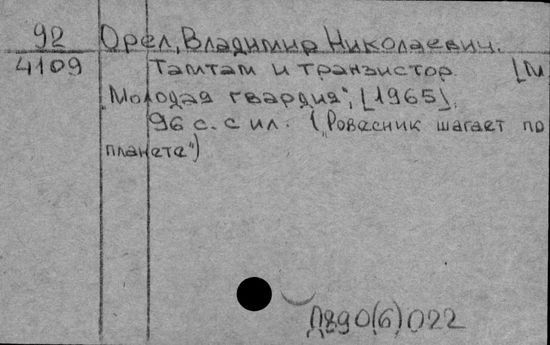 92 Орел, Владимир Николаевич.
4109 Тамтам и транзистор [М
„Молодая гвардия”, [1965].
96 с. с ил. („Ровесник шагает по
планете”)
Д890(6)022